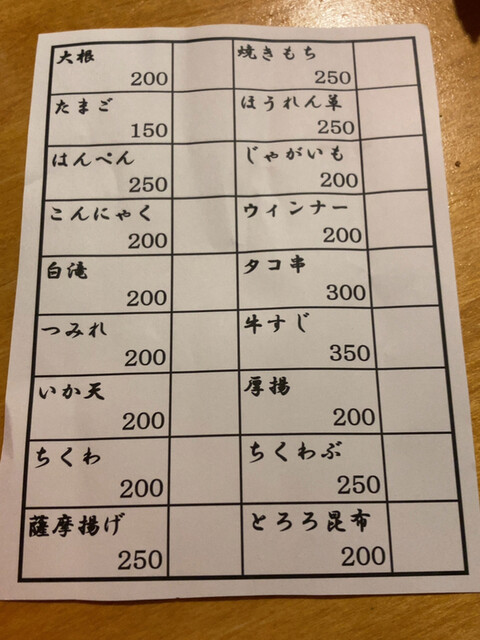 大根
200
焼きもち
250
たまご
150
ほうれん草
250
はんぺん
250
じゃがいも
200
こんにゃく
200
ウィンナー
200
白滝
200
タコ串
300
つみれ
200
牛すじ
350
いか天
200
厚揚
200
ちくわ
200
ちくわぶ
250
薩摩揚げ
250
とろろ昆布
200